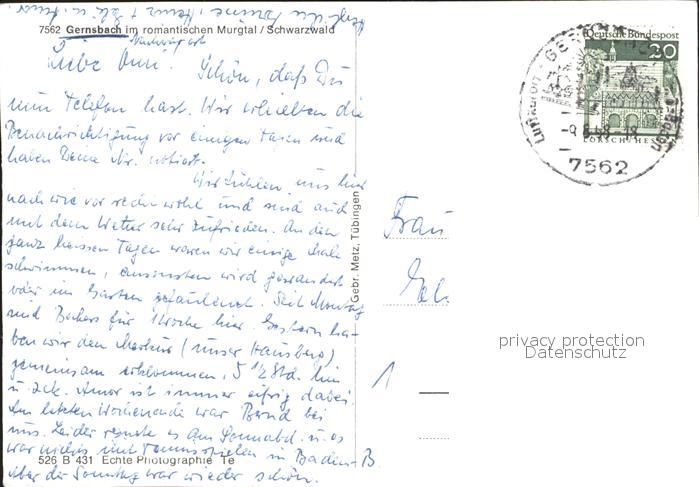 7562 Gernsbach im romantischen Murgtal / Schwarzwald
Liebe Omi. Schön, daß Du
nun Telefon hast. Wir erhielten die
Benachrichtigung vor einigen Tagen und
haben Deine Nr. notiert.
Wir fühlen uns hier
nach wie vor recht wohl und sind auch
mit dem Wetter sehr zufrieden. An den
ganz heissen Tagen waren wir einige Male
schwimmen, ansonsten wird gewandert
oder im Garten gefaulenzt. Seit Montag
sind Bekers für 1 Woche hier. Gestern ha-
ben wir den Merkur (unser Hausberg)
gemeinsam erklommen, 5 1/2 Std. hin
u. zck. Amor ist immer eifrig dabei.
Am letzten Wochenende war Bernd bei
uns. Leider regnete es am Sonnabd. u. es
war nichts mit Tennisspielen in Baden-B.
Aber der Sonntag war wieder schön.
526 B 431 Echte Photographie Te
Gebr. Metz, Tübingen
Deutsche Bundespost
20
LORSCH/HESS
7562
Frau
1
privacy protection
Datenschutz